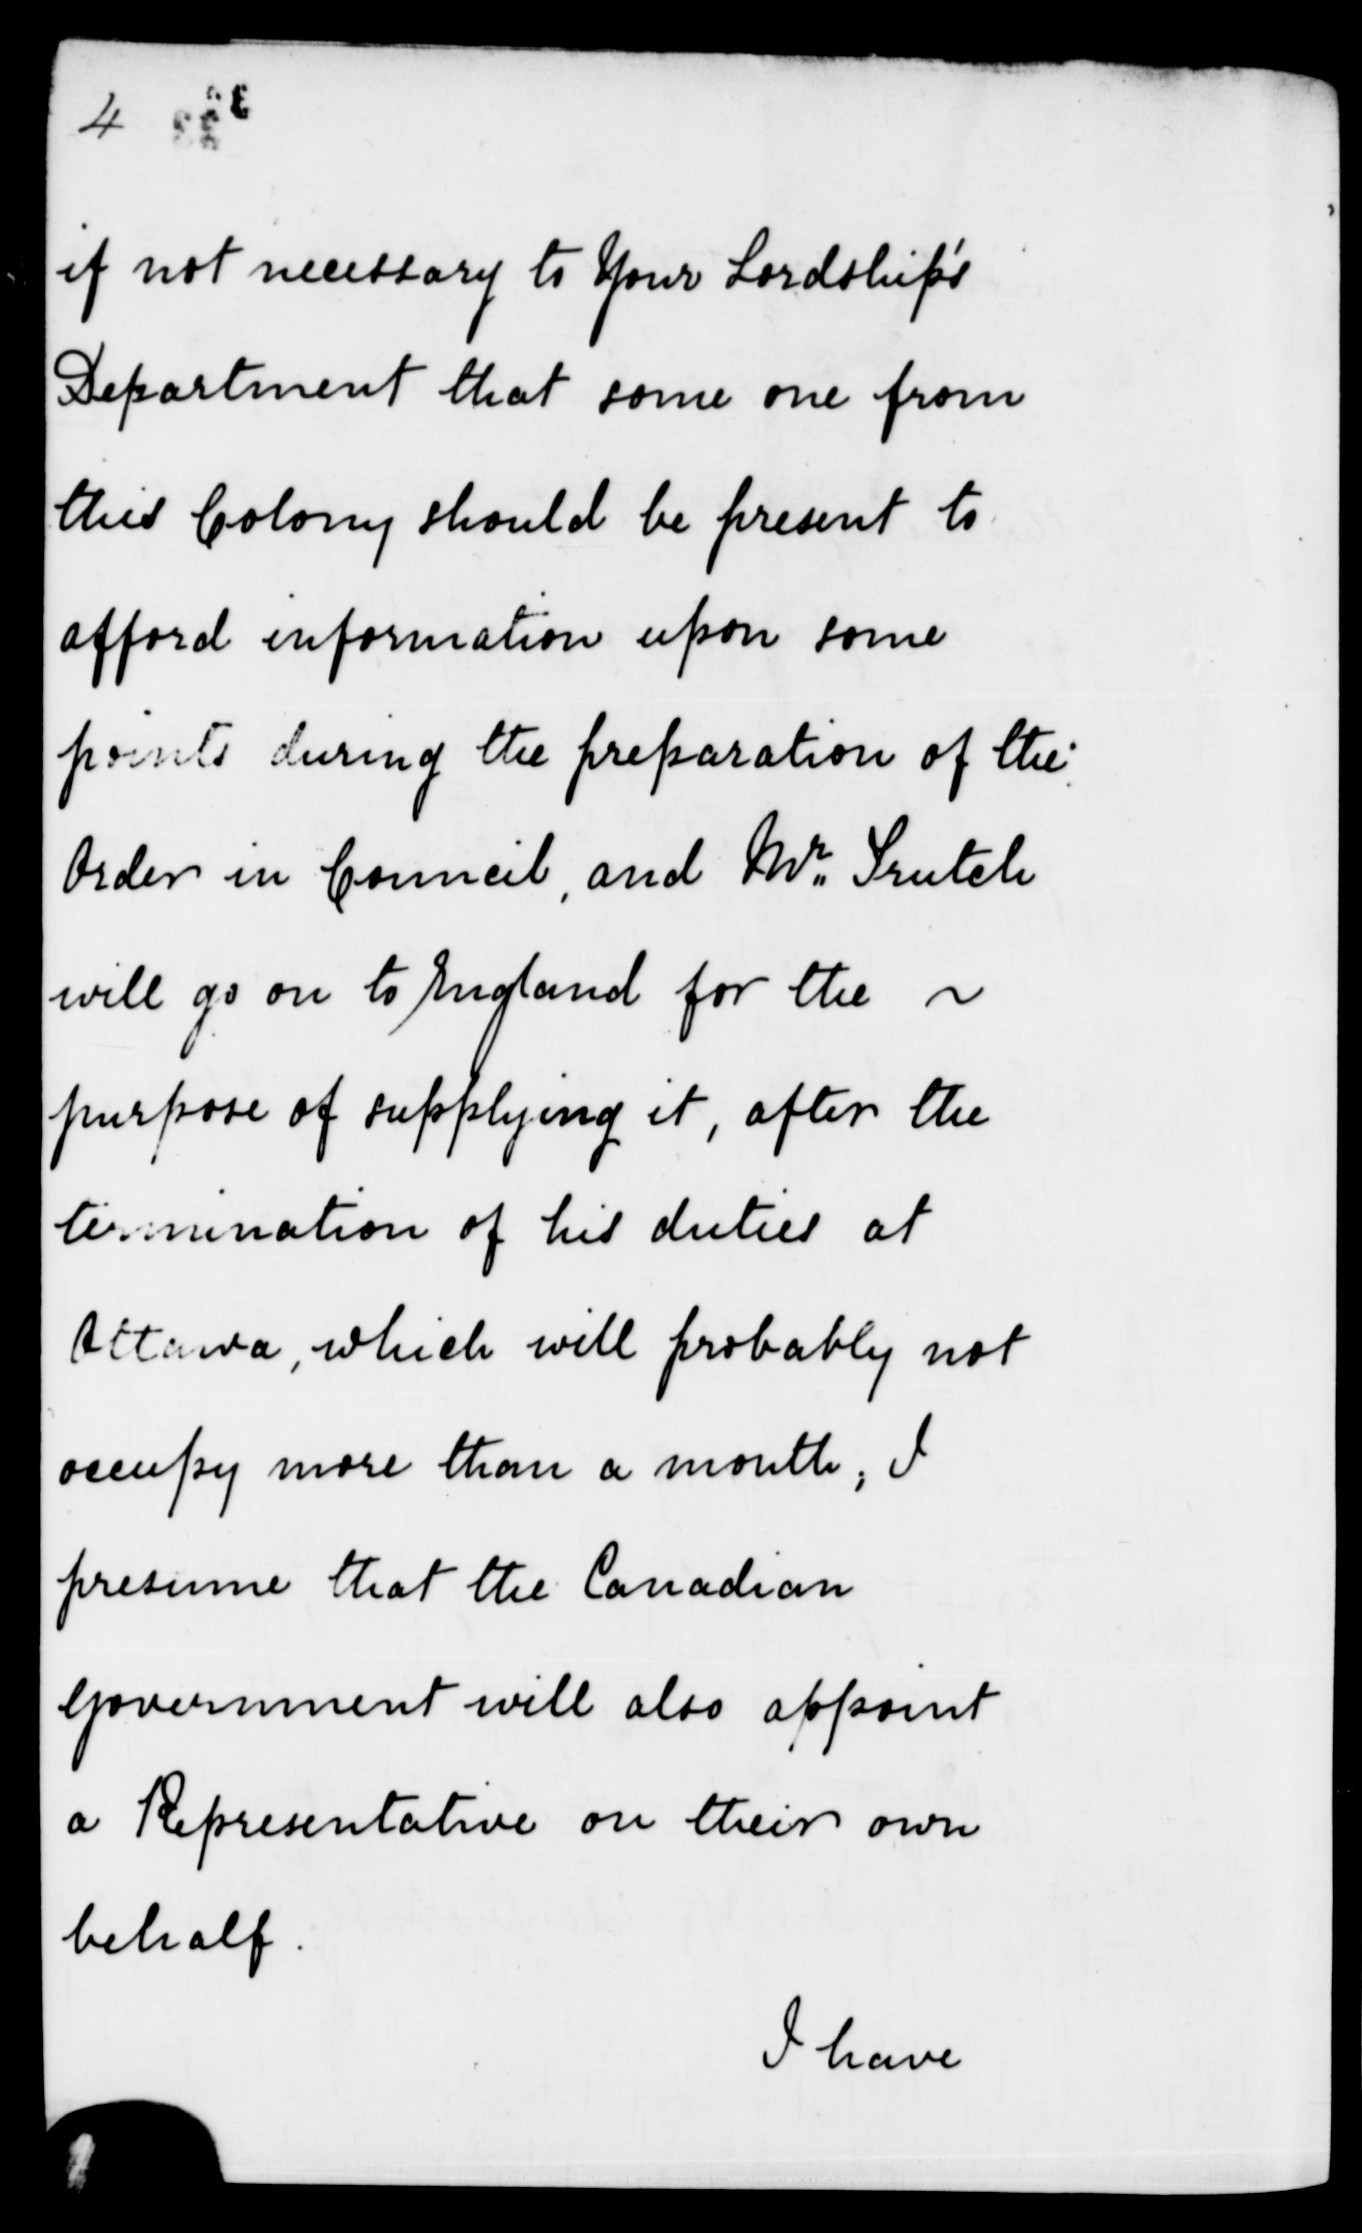 4
if not necessary to Your Lordship's
Department that some one from
this Colony should be present to
afford information upon some
points during the preparation of the
Order in Council, and Mr. Trutch
will go on to England for the ~
purpose of supplying it, after the
termination of his duties at
Ottawa, which will probably not
occupy more than a month; I
presume that the Canadian
Government will also appoint
a Representative on their own
behalf.
I have